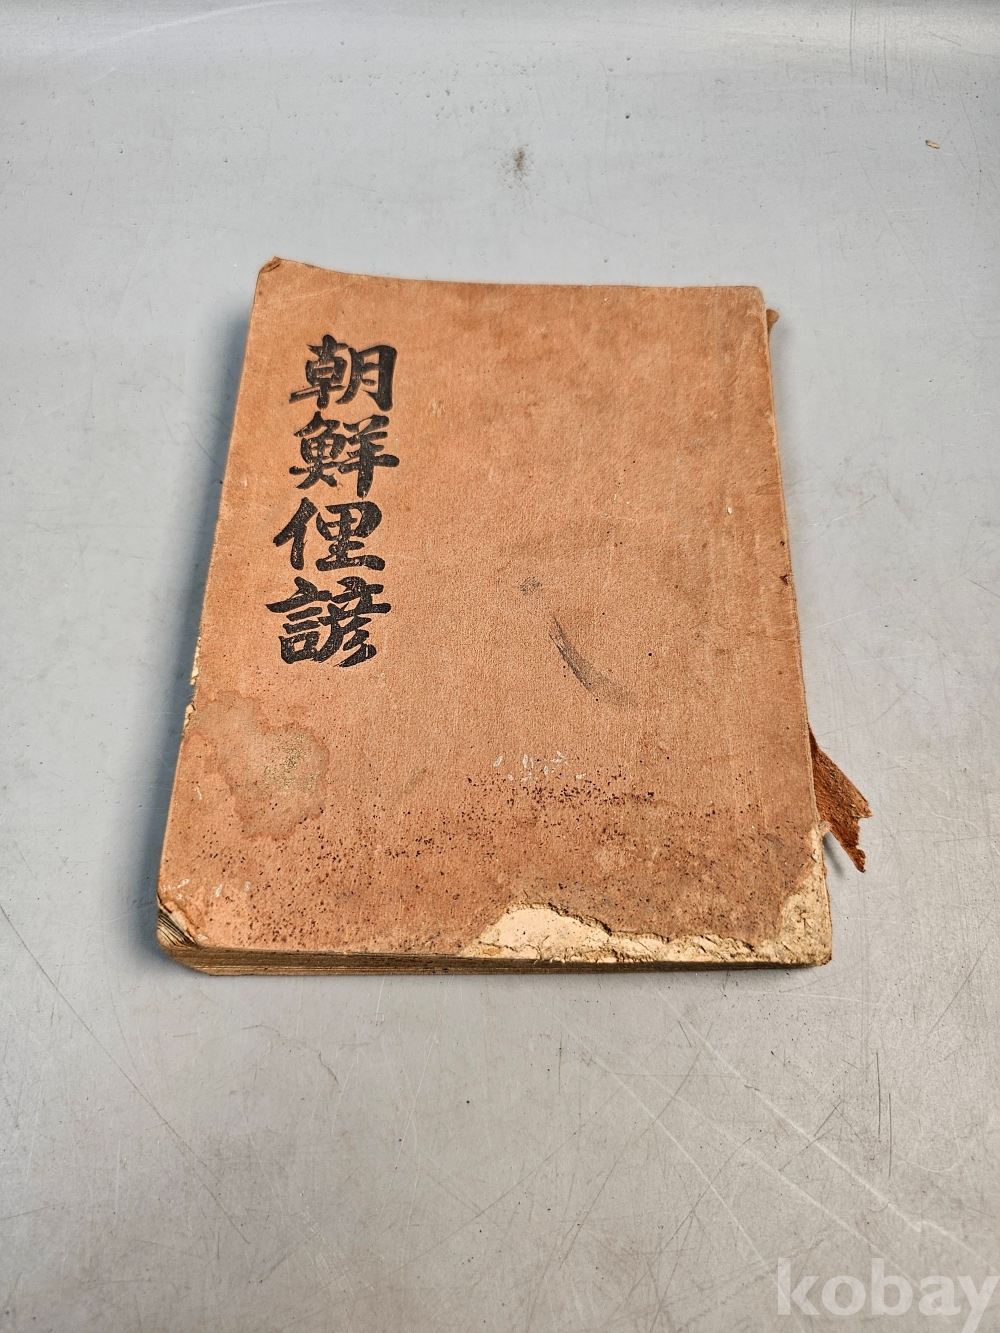 朝鮮俚諺
kobay